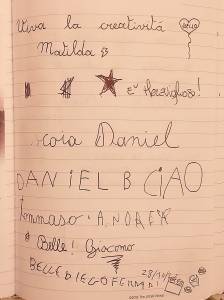 Viva la creatività
Matilda
è Meraviglioso!
Daniel
DANIEL B CIAO
Tommaso ANDREA
Belle! Giacomo
BELLE DIEGO FERMARI